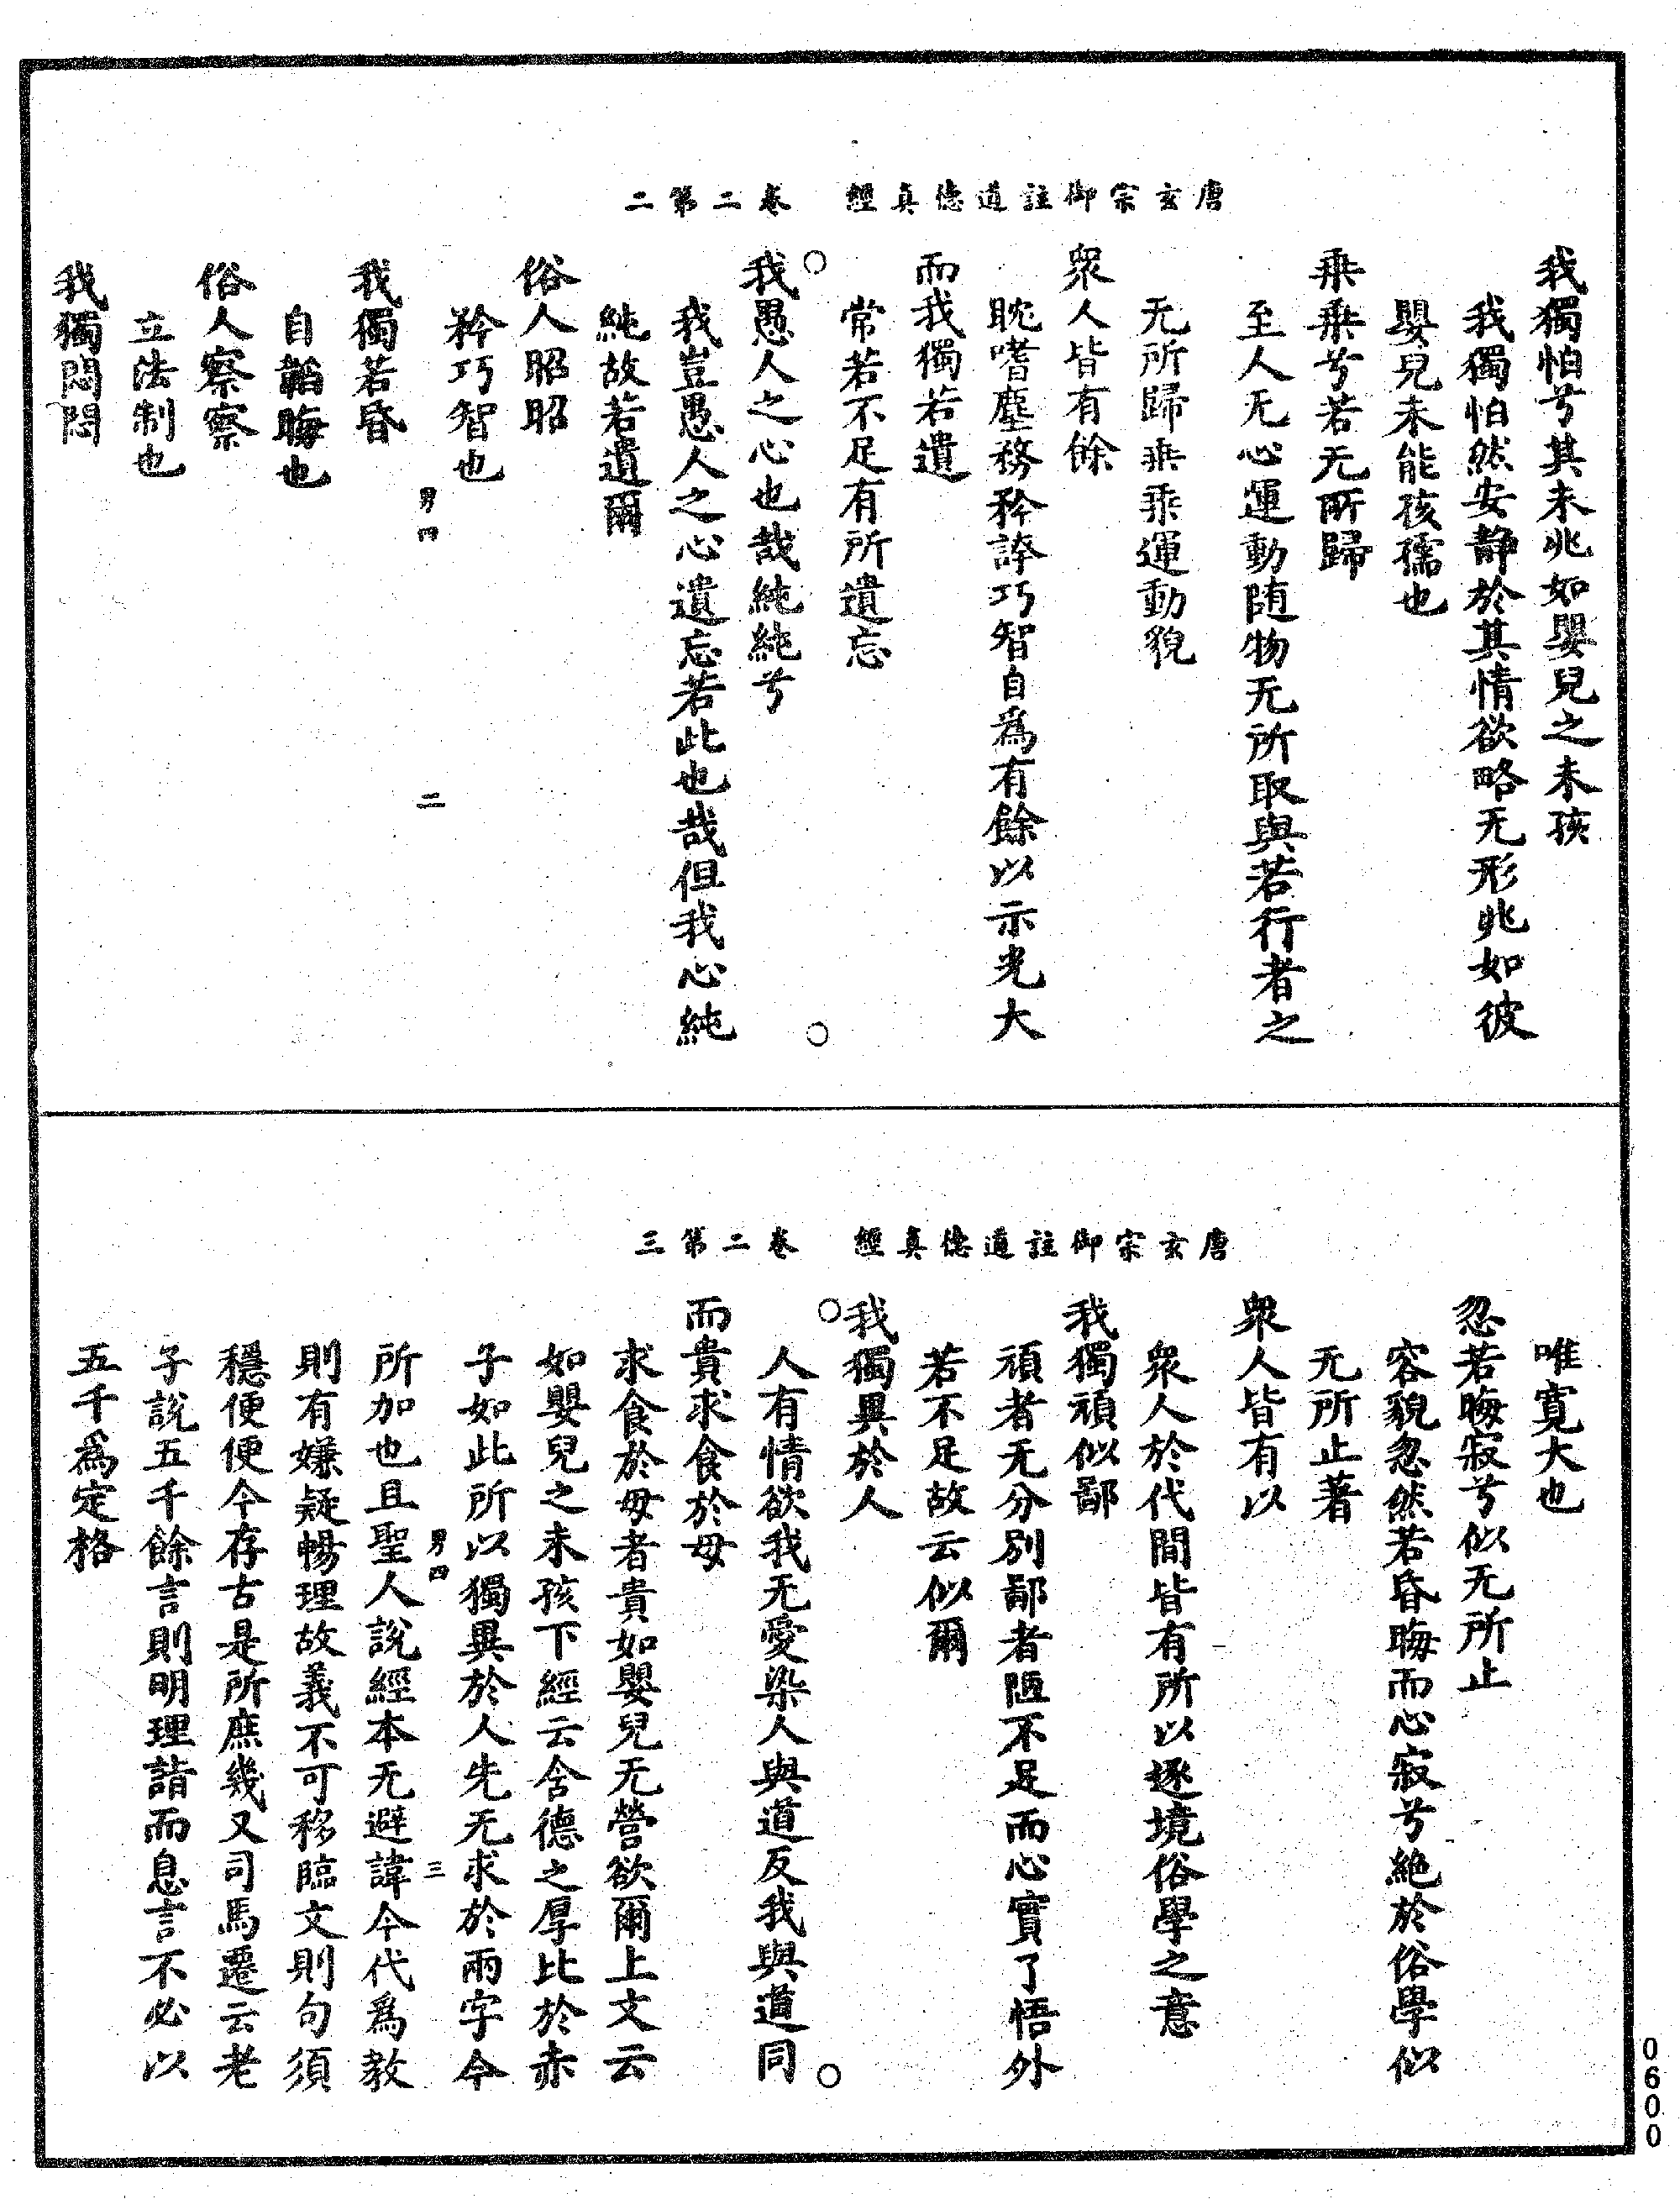 唐玄宗御註道德真經　卷二第二
我獨怕兮其未兆如嬰兒之未孩
我獨怕然安靜於其情欲略无形兆如彼
嬰兒未能孩孺也
乘乘兮若无所歸
至人无心運動随物无所取與若行者之
无所歸乘乘運動貌
衆人皆有餘
耽嗜塵務矜誇巧智自爲有餘以示光大
而我獨若遺
常若不足有所遺忘
我愚人之心也哉純純兮
我豈愚人之心遺忘若此也哉但我心純
純故若遺爾
俗人昭昭
矜巧智也
男四　二
我獨若昏
自韜晦也
俗人察察
立法制也
我獨悶悶
唐玄宗御註道德真經　卷二第三
唯寬大也
忽若晦寂兮似无所止
容貌忽然若昏晦而心寂兮絶於俗學似
无所止著
衆人皆有以
衆人於代間皆有所以逐境俗學之意
我獨頑似鄙
頑者无分别鄙者陋不足而心實了悟外
若不足故云似爾
我獨異於人
人有情欲我无愛染人與道反我與道同
而貴求食於母
求食於母者貴如嬰兒无營欲爾上文云
如嬰兒之未孩下經云含德之厚比於赤
子如此所以獨異於人先无求於兩字今
男四　三
所加也且聖人說經本无避諱今代爲教
則有嫌疑暢理故義不可移臨文則句須
穩便便今存古是所庶幾又司馬遷云老
子說五千餘言則明理詣而息言不必以
五千爲定格
0600